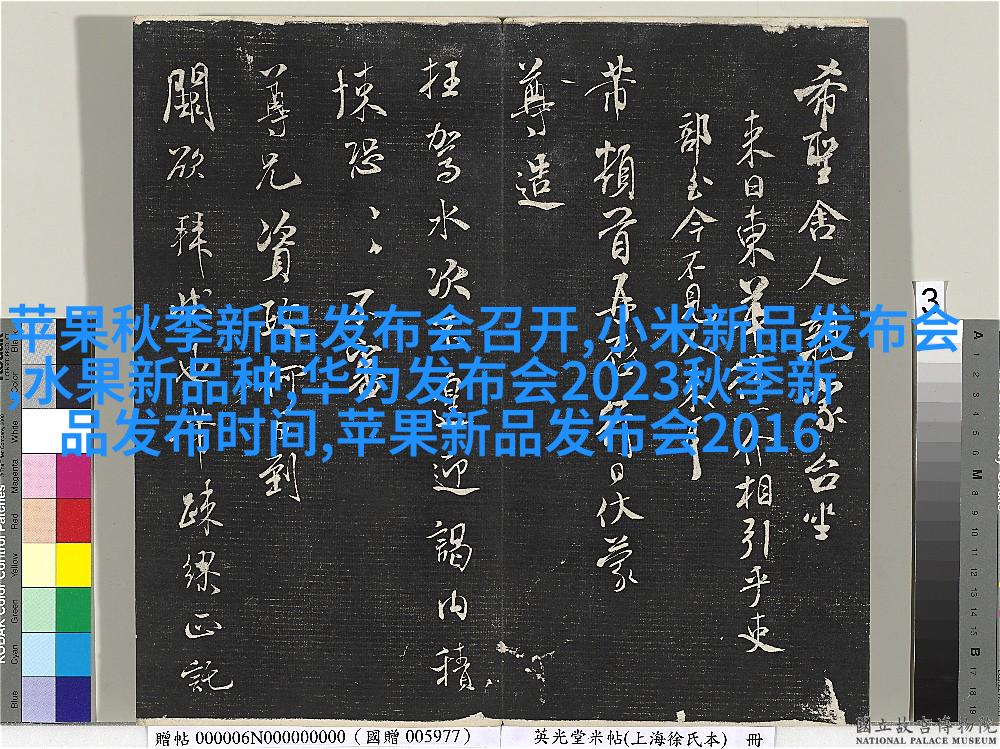 希聖舍人
台坐
來日東
相引乎吏
部玉今不見
芾頓首再
日伏蒙
尊造
枉駕水次
迎謁內積
悚恐
尊兄資政
到
闕欲拜
疎繆正託
苹果秋季新品发布会召开,小米新品发布会
,水果新品种,华为发布会2023秋季新
品发布时间,苹果新品发布会2016
3
KODAK Color Control Patches
Blue
Cyan
Green
Yellow
Red
Magenta
White
Color
Black
A
1
2
3
4
5
6
M
8
9
10
11
12
13
14
15
B
17
18
19
贈帖 000006N000000000 (國贈 005977)
英光堂米帖(上海徐氏本) 冊
國立故宮博物院
NATIONAL PALACE MUSEUM